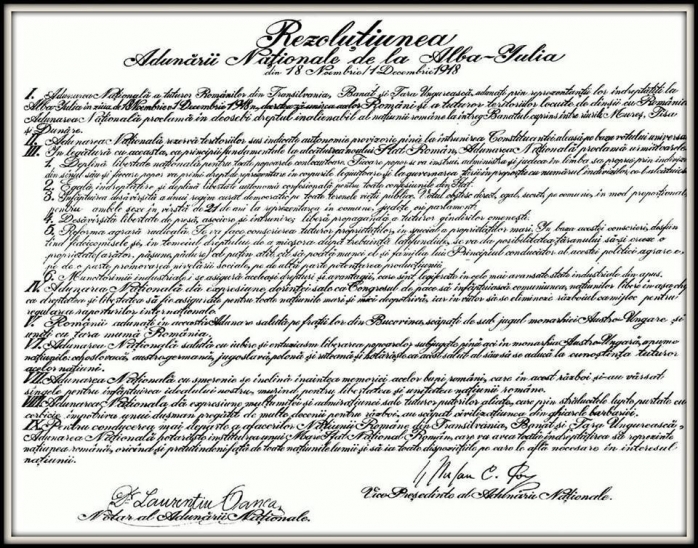 Rezoluțiunea
Adunării Naționale de la Alba-Iulia
din 18 Noembrie/1 Decembrie 1918
I. Adunarea Națională a tuturor Românilor din Transilvania, Banat și Țara Ungurească, adunați prin reprezentanții lor îndreptățiți la
Alba-Iulia în ziua de 18 Noembrie/1 Decembrie 1918, decretează unirea acelor Români și a tuturor teritoriilor locuite de dânșii cu România.
Adunarea Națională proclamă îndeosebi dreptul inalienabil al națiunii române la întreg Banatul cuprins între râurile Mureș, Tisa
și Dunăre.
II. Adunarea Națională rezervă teritoriilor sus indicate autonomie provizorie până la întrunirea Constituantei aleasă pe baza votului universal
III. În legătură cu aceasta, ca principii fundamentale la alcătuirea noului Stat Român, Adunarea Națională proclamă următoarele
1. Deplină libertate națională pentru toate popoarele conlocuitoare. Fiecare popor se va instrui, administra și judeca în limba sa proprie prin indivizi
din sânul său și fiecare popor va primi drept de reprezentare în corpurile legiuitoare și la guvernarea țării în proporție cu numărul indivizilor ce-l alcătuiesc
2. Egală îndreptățire și deplină libertate autonomă confesională pentru toate confesiunile din Stat.
3. Înfăptuirea desăvârșită a unui regim curat democratic pe toate terenele vieții publice. Votul obștesc, direct, egal, secret, pe comune, în mod proporțional,
pentru ambele sexe, în vârstă de 21 de ani la reprezentarea în comune, județe ori parlament.
4. Desăvârșită libertate de presă, asociere și întrunire; libera propagandă a tuturor gândirilor omenești.
5. Reforma agrară radicală. Se va face conscrierea tuturor proprietăților, în special a proprietăților mari. În baza acestei conscrieri, desființ
ind fideicomisele și, în temeiul dreptului de a micșora după trebuință latifundiile, se va da posibilitatea țăranului să-și creeze o
proprietate (arător, pășune, pădure) cel puțin atât cât să poată munci el și familia lui. Principiul conducător al acestei politice agrare e
pe de o parte promovarea nivelării sociale, pe de altă parte potențarea producțiunii.
6. Muncitorimei industriale i se asigură aceleași drepturi și avantagii, cari sunt legiferate în cele mai avansate state industriale din apus.
IV. Adunarea Națională dă expresiune dorinței sale, ca Congresul de pace să înfăptuiască comuniunea națiunilor libere în așa chip,
ca dreptatea și libertatea să fie asigurate pentru toate națiunile mari și mici deopotrivă, iar în viitor să se elimineze războiul ca mijloc pentru
regularea raporturilor internaționale.
V. Românii adunați în această Adunare salută pe frații lor din Bucovina, scăpați de sub jugul monarhiei Austro-Ungare și
uniți cu țara mumă România.
VI. Adunarea Națională salută cu iubire și entuziasm liberarea popoarelor subjugate până aci în monarhia Austro-Ungară, anume
națiunile: cehoslovacă, austrogermană, jugoslavă, polonă și ruteană și hotărăște ca acest salut al său să se aducă la cunoștința tuturor
acelor națiuni.
VII. Adunarea Națională cu smerenie se închină înaintea memoriei acelor bravi români, care în acest război și-au vărsat
sângele pentru înfăptuirea idealului nostru, murind pentru libertatea și unitatea națiunii române.
VIII. Adunarea Națională dă expresiune mulțumitei și admirațiunei sale tuturor puterilor aliate, care prin strălucitele lupte purtate cu
cerbicie împotriva unui dușman pregătit de multe decenii pentru război, au scăpat civilizațiunea din ghiarele barbariei.
IX. Pentru conducerea mai departe a afacerilor Națiunii Române din Transilvania, Banat și Țara Ungurească,
Adunarea Națională hotărăște instituirea unui Mare Sfat Național Român, care va avea toată îndreptățirea să reprezinte
națiunea română, oricând și pretutindeni față de toate națiunile lumii și să ia toate dispozițiile pe care le află necesare în interesul
națiunii.
Dr. Laurențiu Oanea
Notar al Adunării Naționale.
Vice-Președinte al Adunării Naționale.